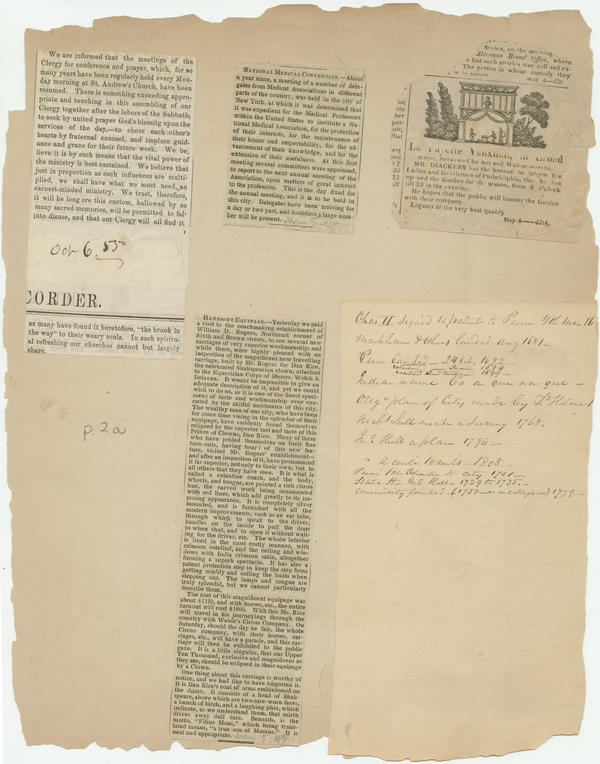 We are informed that the meetings of the
Clergy for conference and prayer, which, for so
many years have been regularly held every Mon-
day morning at St. Andrew's Church, have been
resumed. There is something exceeding appro-
priate and touching in this assembling of our
Clergy together after the labors of the Sabbath,
to seek by united prayer God's blessing upon the
services of the day,—to cheer each other's
hearts by fraternal counsel, and implore guid-
ance and grace for their future work. We be-
lieve it is by such means that the vital power of
the ministry is best sustained. We believe that
just in proportion as such influences are multi-
plied, we shall have what we must need, an
earnest-minded ministry. We trust, therefore,
it will be long ere this custom, hallowed by so
many sacred memories, will be permitted to fal
into disuse, and that our Clergy will all find it
Oct 6. 55
CORDER.
as many have found it heretofore, "the brook in
the way" to their weary souls. In each spiritu-
al refreshing our churches cannot but largely
share.
p. 2a
NATIONAL MEDICAL CONVENTION.—About
a year since, a meeting of a number of dele-
gates from Medical Associations in different
parts of the country, was held in the city of
New York, at which it was determined that
it was expedient for the Medical Professors
within the United States to institute a Na-
tional Medical Association, for the protection
of their interests, for the maintenance of
their honor and respectability, for the ad-
vancement of their knowledge, and for the
extension of their usefulness. At this first
meeting several committees were appointed,
to report to the next annual meeting of the
Association, upon matters of great interest
to the profession. This is the day fixed for
the annual meeting, and it is to be held in
this city. Delegates have been arriving for
a day or two past, and doubtless a large num-
ber will be present.
Stolen, on the morning
Alderman Binns' Office, where
lost such articles may call and ex-
The person in whose custody they
may 4—d3t
La Fayette Vauxhall, in Broad
street, between Chesnut and Walnut streets.
MR DIACKERY has the honour to inform the
Ladies and Gentlemen of Philadelphia, that he has
up-ned the Garden for the season, from 6 o'clock
till 10 in the evening.
He hopes that the public will honour the Garden
with their company.
Liquors of the very best quality.
May 4
HANDSOME EQUIPAGE.—Yesterday we paid
a visit to the coachmaking establishment of
William D. Rogers, Northeast corner of
Sixth and Brown streets, to see several new
carriages of very superior workmanship; and
while there, were highly pleased with an
inspection of the magnificent new travelling
carriage, built by Mr. Rogers for Dan Rice,
the celebrated Shakspearean clown, attached
to the Equestrian Corps of Messrs. Welch &
Delavan. It would be impossible to give an
adequate description of it, and yet we could
wish to do so, as it is one of the finest speci-
mens of taste and workmanship ever exe-
cuted by the skilful mechanics of this city.
The wealthy men of our city, who have been
for some time vieing in the splendor of their
equipage, have suddenly found themselves
eclipsed by the superior tact and taste of this
Prince of Clowns, Dan Rice. Many of them
who have prided themselves on their fine
turn-outs, having heard of this new fea-
ture, visited Mr. Rogers' establishment—
and after an inspection of it, have pronounced
it far superior, not only to their own, but to
all others that they have seen. It is what is
called a calantion coach, and the body,
wheels, and tongue, are painted a rich citron
hue, the carved work being ornamented
with red lines, which add greatly to its im-
posing appearance. It is completely silver
mounted, and is furnished with all the
modern improvements, such as an ear tube,
through which to speak to the driver,
handles on the inside to pull the door
to when shut, and to open it without wait-
ing for the driver, etc. The whole interior
is lined in the most costly manner, with
crimson cotelind, and the ceiling and win-
dows with India crimson satin, altogether
forming a superb spectacle. It has also a
patent protection step to keep the step from
getting muddy and soiling the boots when
stepping out. The lamps and tongue are
truly splendid, but we cannot particularly
describe them.
The cost of this magnificent equipage was
about $1120, and with horses, etc., the entire
turnout will cost $1800. With this Mr. Rice
will travel in his journeyings through the
country with Welch's Circus Company. On
Saturday, should the day be fair, the whole
Circus company, with their horses, car-
riages, etc., will have a parade, and this car-
riage will then be exhibited to the public
gaze. It is a little singular, that our Upper
Ten Thousand, exclusive and magnificent as
they are, should be eclipsed in their equipage
by a Clown.
One thing about this carriage is worthy of
notice, and we had like to have forgotten it.
It is Dan Rice's coat of arms emblazoned on
the doors. It consists of a head of Shak-
speare, above which are two care-worn faces,
a bunch of birch, and a laughing phiz, which
indicate, as we understand them, that mirth
drives away dull care. Beneath, is the
motto, "Filius Momi," which being trans-
lated means, "a true son of Momus." It is
neat and appropriate.
Chas II signed ye patent to Penn 4th Mar 16
Markham & others landed Aug 1681.—
Penn landed—24 Oct. 1682
Indian name Co a que na que—
Orig. plan of City made by Ths Holme
Nichs Scull made a Survey 1762.
Jno Hills a plan 1796—
" a circle 10 mils—1808.
Penns
State H
University founded